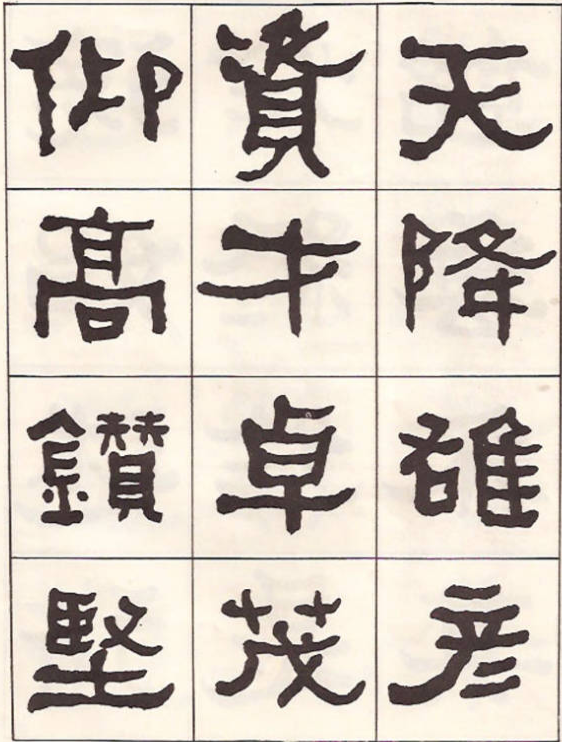 天降雄彦
資才卓茂
仰高鑽堅